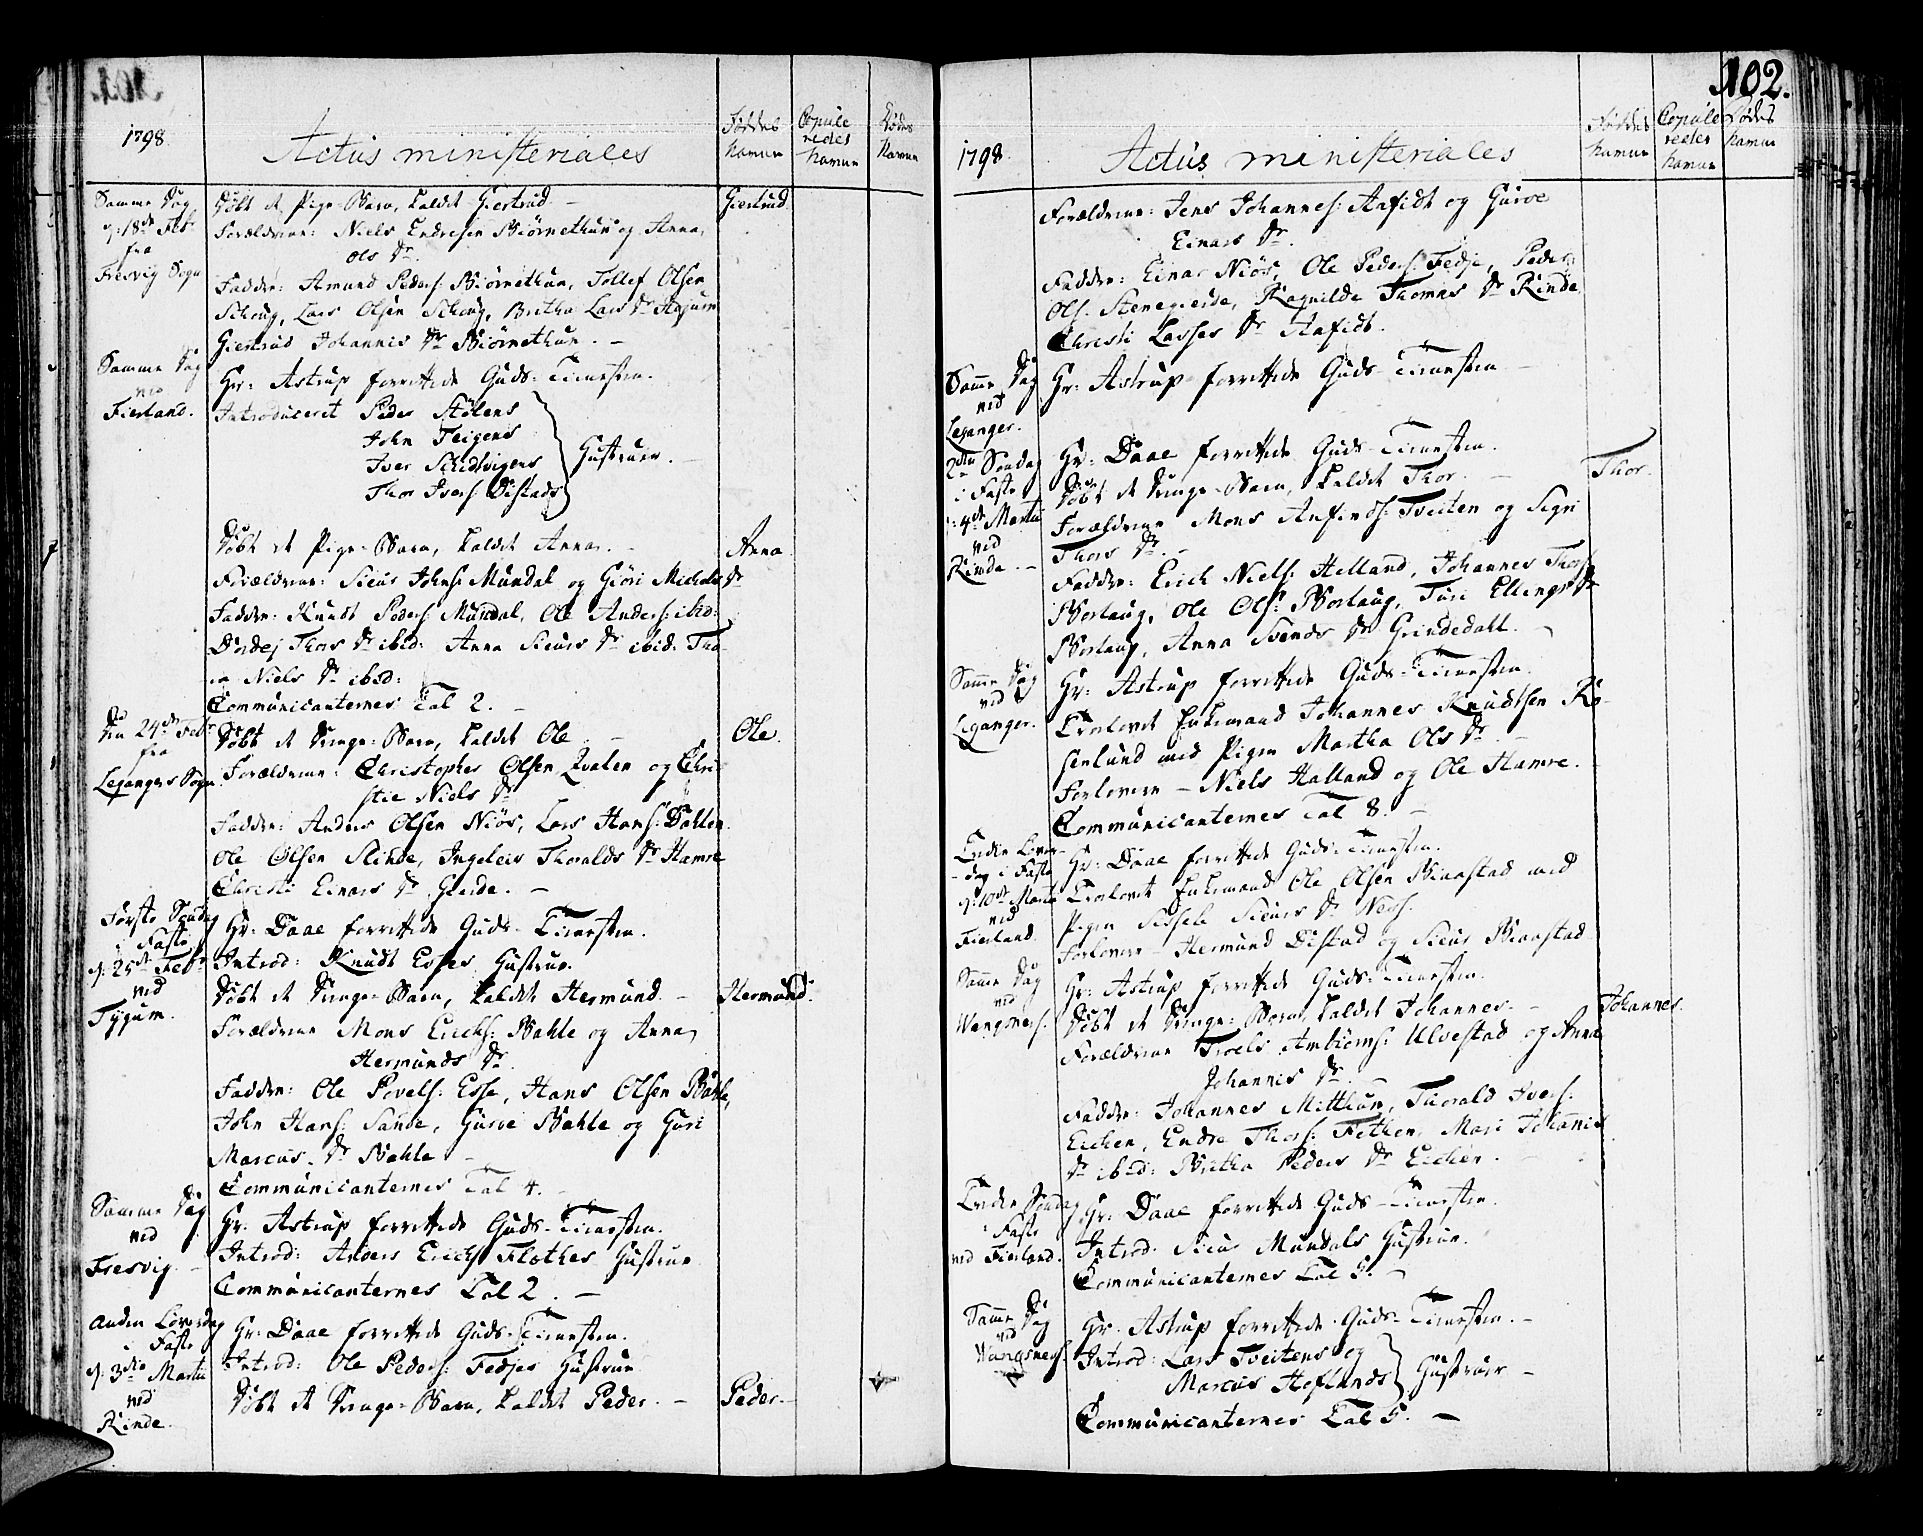 1798.
Actus ministeriales
Føddes Navne
Copule redes Navne
Dødes Navne
Samme Dag
d: 18de Feb:
fra
Fresvig Sogn
Døbt et Pige-Barn, kaldet Giertrud –
Giertrud
Forældrene: Niels Endresen Biørnethun og Anna
Ols Dr.
Faddere: Amund Peders: Biørnethun, Tollef Olsen
Schoug, Lars Olsen Schoug, Britha Lars Dr
Giertrud Johannis Dr Biørnethun. –
Samme Dag
ved
Fierland.
Hr: Astrup forrettede Guds-Tienesten.
Introduceret Peder Stølens
John Teigens
Iver Schidvigens
Thor Ivers: Distads
Hustruer. –
Døbt et Pige-Barn, kaldet Anna. –
Anna
Forældrene: Siur Johns: Mundal og Giøri Michels Dr
Faddere: Knudt Peders: Mundal, Ole Anders: ibid:
Thors Dr ibid: Anna Siurs Dr ibid: Tho
Niels Dr ibid:
Communicanternes Tal 2. –
Den 24de Febr
fra
Leganger Sogn.
Døbt et Drenge-Barn, kaldet Ole. –
Ole.
Forældrene: Christopher Olsen Qvalen og Chri
stie Niels Dr
Faddere: Anders Olsen Niøs, Lars Hans: Dahlen
Ole Olsen Slinde, Ingeleiv Thoralds Dr Hamre
Christi Einars Dr Gierde. –
Første Søndag
i Faste
d: 25de Febr
ved
Tygum.
Hr: Daae forrettede Guds-Tienesten.
Introd: Knudt Esses Hustrue.
Døbt et Drenge-Barn, kaldet Hermund. –
Hermund.
Forældrene Mons Erichs: Bahle og Anna
Hermunds Dr.
Faddere: Ole Povels: Esse, Hans Olsen Bahle,
John Hans: Sande, Gurve Bahle og Guri
Marcus Dr Bahle –
Communicanternes Tal 4. –
Samme Dag
ved
Fresvig. –
Hr: Astrup forrettede Guds-Tienesten.
Introd: Anders Erichs: Flothes Hustrue
Communicanternes Tal 2. –
Anden Løverdag
i Faste
d: 3die Martii
ved
Rinde.
Hr: Daae forrettede Guds-Tienesten.
Introd: Ole Peders: Fedjes Hustrue
Døbt et Drenge-Barn, kaldet Peder. –
Peder. –
102.
1798.
Actus ministeriales
Føddes Navne
Copule redes Navne
Dødes Navne
Forældrene: Jens Johannes: Anfidt og Gurve
Einars Dr.
Faddere: Einar Niøs, Ole Peders: Fedje, Peder
Ols: Stenegierde, Ragnilde Thomas Dr Rinde
Christi Lasses Dr Anfidt.
Samme Dag
ved
Leganger.
Hr: Astrup forrettede Guds-Tienesten –
2den Søndag
i Faste
d: 4de Martii
ved
Rinde. –
Hr: Daae forrettede Guds-Tienesten.
Døbt et Drenge-Barn, kaldet Thor. –
Thor.
Forældrene Mons Anfinds: Tveiten og Sigri
Thors Dr. –
Faddere: Erich Niels: Helland, Johannes Thors:
Borlaug, Ole Ols: Borlaug, Turi Ellings Dr
Borlaug, Anna Svends Dr Grindedahl. –
Samme Dag
ved
Leganger.
Hr: Astrup forrettede Guds-Tienesten.
Trolovet Enkemand Johannes Knudtsen Ro-
senlund med Pigen Martha Ols Dr. –
Forlovere – Niels Halland og Ole Hamre.
Communicanternes Tal 8. –
Tredie Løver-
dag i Faste
d: 10de Martii
ved
Fierland.
Hr: Daae forrettede Guds-Tienesten.
Trolovet Enkemand Ole Olsen Baastad med
Pigen Sissele Siurs Dr
Forlovere – Hermund Distad og Siur Baastad
Samme Dag
ved
Wangsnes.
Hr: Astrup forrettede Guds-Tienesten.
Døbt et Drenge-Barn, kaldet Johannes. –
Johannes.
Forældrene Troels Ambiørns: Ulvestad og Anna
Johannis Dr. –
Faddere: Johannes Mitthun, Thorald Ivers:
Eichen, Endre Thors: Fethen, Mari Johannis
Dr ibid: Britha Peders Dr Eichen. –
Tredie Søndag
i Faste
ved Fierland.
Hr: Daae forrettede Guds-Tienesten.
Introd: Siur Mundals Hustrue.
Communicanternes Tal 5. –
Samme Dag
ved
Wangsnes.
Hr: Astrup forrettede Guds-Tienesten. –
Introd: Lars Tveitens og
Marcus Hoflands
Hustruer –
Communicanternes Tal 5. –